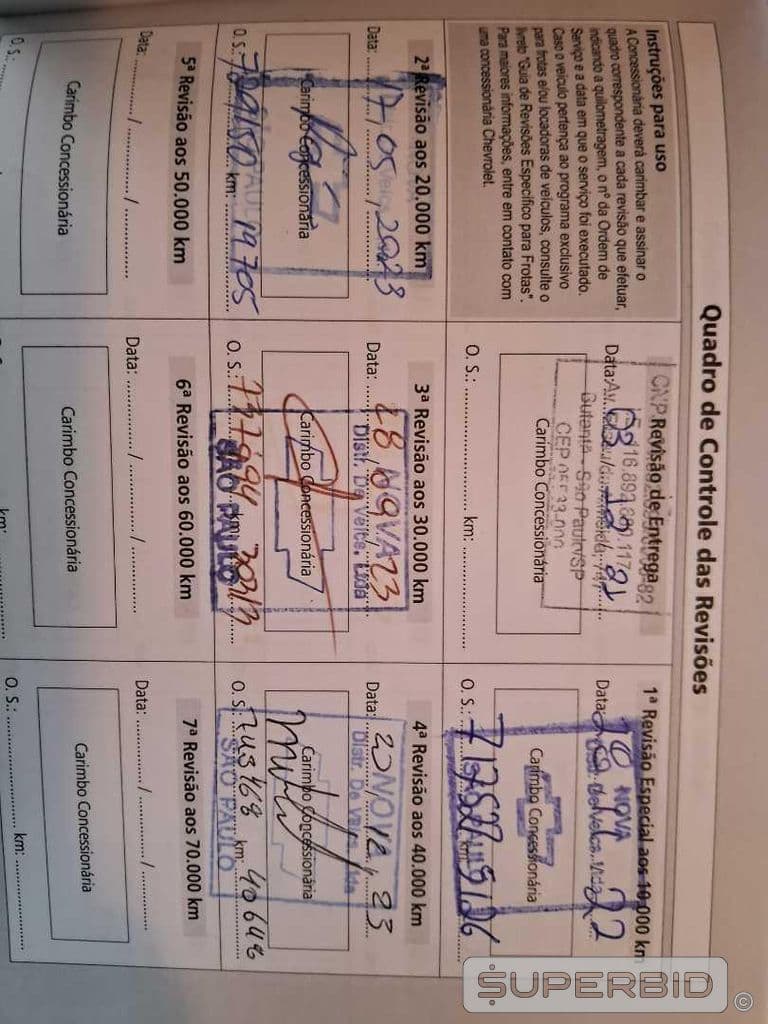 Quadro de Controle das Revisões
Instruções para uso
A Concessionária deverá carimbar e assinar o
quadro correspondente a cada revisão que efetuar,
indicando a quilometragem, o nº da Ordem de
Serviço e a data em que o serviço foi executado.
Caso o veículo pertença ao programa exclusivo
para frotas e/ou locadoras de veículos, consulte o
livreto "Guia de Revisões Específico para Frotas".
Para maiores informações, entre em contato com
uma concessionária Chevrolet.
CNPJ
Revisão de Entrega
Data: 03 21
Butantã - São Paulo/SP
CEP
Carimbo Concessionária
O. S.: km:
1ª Revisão Especial aos 10.000 km
NOVA
Data: 22
Carimbo Concessionária
O. S.: km: 9126
2ª Revisão aos 20.000 km
Data: 17 / 05 / 2023
Carimbo Concessionária
O. S.: km: 19705
3ª Revisão aos 30.000 km
NOVA
Data: 28 09 23
Distr. De Veics. Ltda
Carimbo Concessionária
O. S.: 737994 km:
SÃO PAULO
4ª Revisão aos 40.000 km
NOVA
Data: 20 / 12 / 23
Distr. De Veics. Ltda
Carimbo Concessionária
O. S.: 743468 km: 40646
SÃO PAULO
5ª Revisão aos 50.000 km
Data: / /
Carimbo Concessionária
O. S.:
6ª Revisão aos 60.000 km
Data: / /
Carimbo Concessionária
km:
7ª Revisão aos 70.000 km
Data: / /
Carimbo Concessionária
O. S.: km:
SUPERBID ©